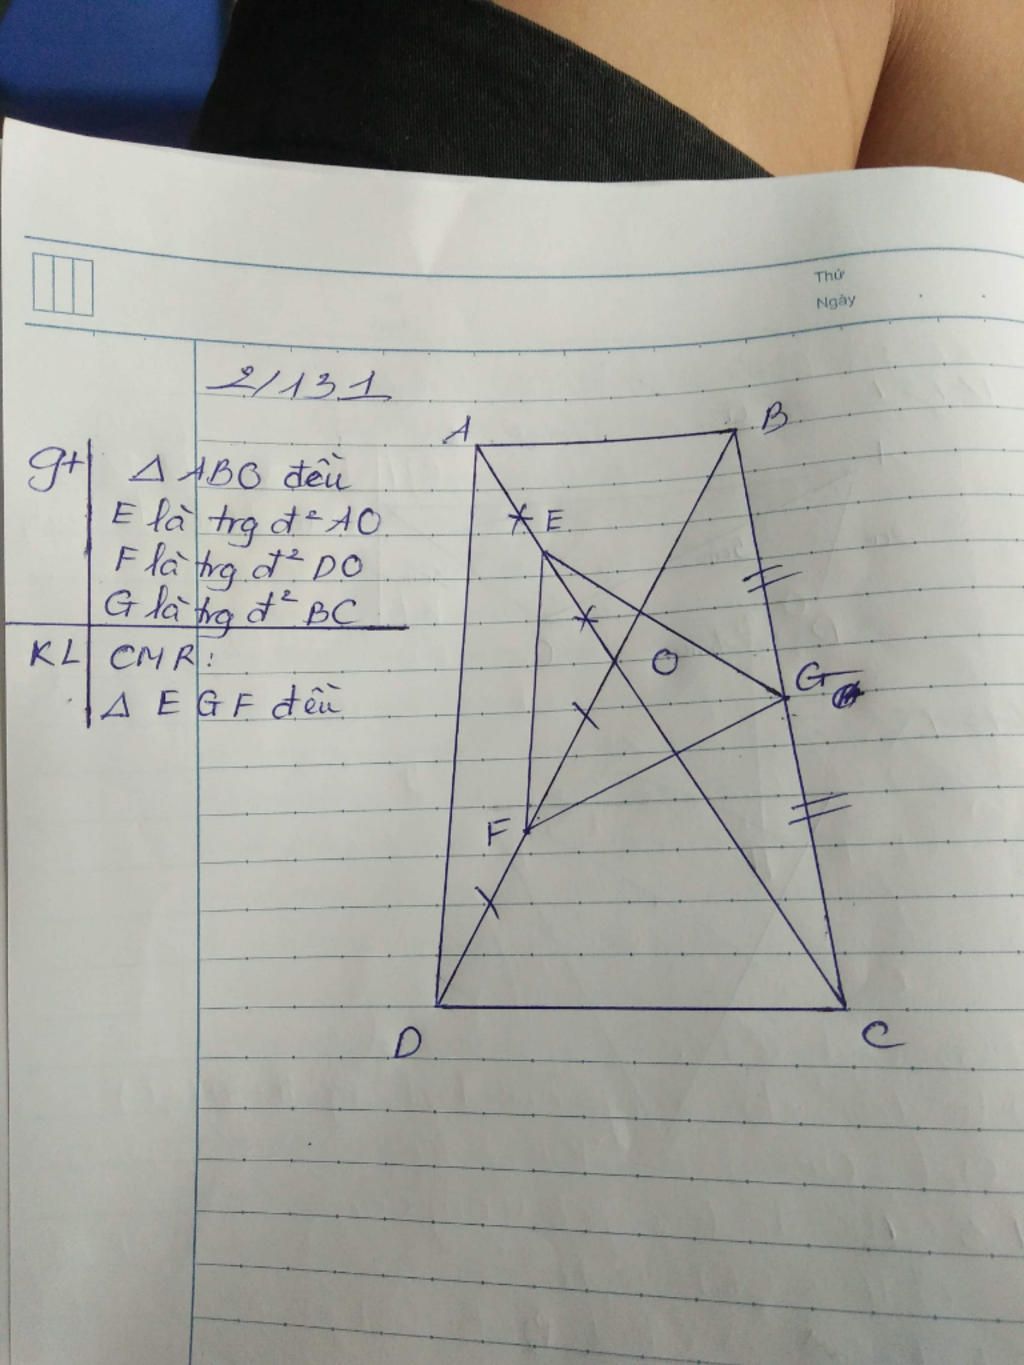 Thứ
Ngày
2/131
gt
Δ ABO đều
E là trg đ² AO
F là trg đ² DO
G là trg đ² BC
KL
CMR:
Δ EGF đều
A
B
E
O
G
F
D
C